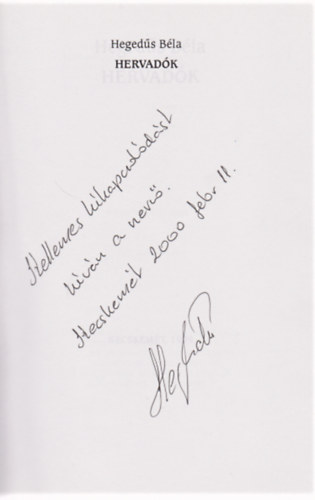 Hegedűs Béla
HERVADÓK
Kellemes kikapcsolódást
kíván a nevző.
Kecskemét 2000 febr 11.
Hegedűs